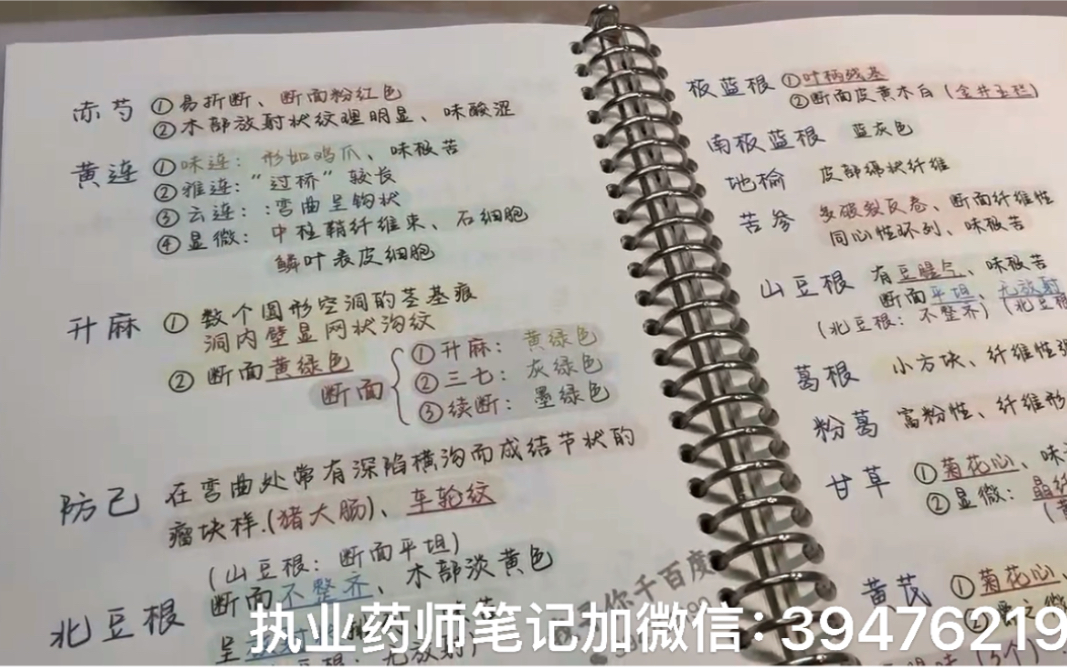 赤芍 ①易折断、断面粉红色
②木部放射状纹理明显、味酸涩
黄连 ①味连：形如鸡爪、味极苦
②雅连：“过桥”较长
③云连：:弯曲呈钩状
④显微：中柱鞘纤维束、石细胞
鳞叶表皮细胞
升麻 ①数个圆形空洞的茎基痕
洞内壁显网状沟纹
②断面黄绿色
断面 ①升麻：黄绿色
②三七：灰绿色
③续断：墨绿色
防己 在弯曲处常有深陷横沟而成结节状的
瘤块样.(猪大肠)、车轮纹
(山豆根：断面平坦)
北豆根 断面不整齐、木部淡黄色
呈
板蓝根 ①叶柄残基
②断面皮黄木白(金井玉栏)
南板蓝根 蓝灰色
地榆 皮部绵状纤维
苦参 多破裂反卷、断面纤维性
同心性环列、味极苦
山豆根 有豆腥气、味极苦
断面平坦、无放射
(北豆根：不整齐)(北豆根
葛根 小方块、纤维性强
粉葛 富粉性、纤维形
甘草 ①菊花心、味
②显微：晶纤
(黄
黄芪 ①菊花心、
②
你千百度
执业药师笔记加微信：39476219